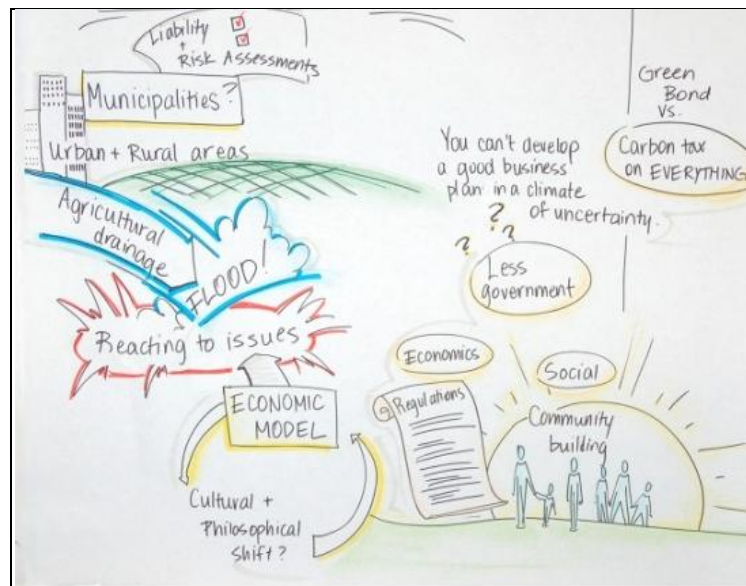 Liability
+
Risk Assessments
Municipalities?
Urban + Rural areas
Agricultural
drainage
FLOOD!
Reacting to issues
ECONOMIC
MODEL
Cultural +
Philosophical
Shift?
Green
Bond
Vs.
Carbon tax
on EVERYTHING
You can't develop
a good business
plan in a climate
of uncertainty.
? ? ?
Less
government
Economics
Social
Regulations
Community
building